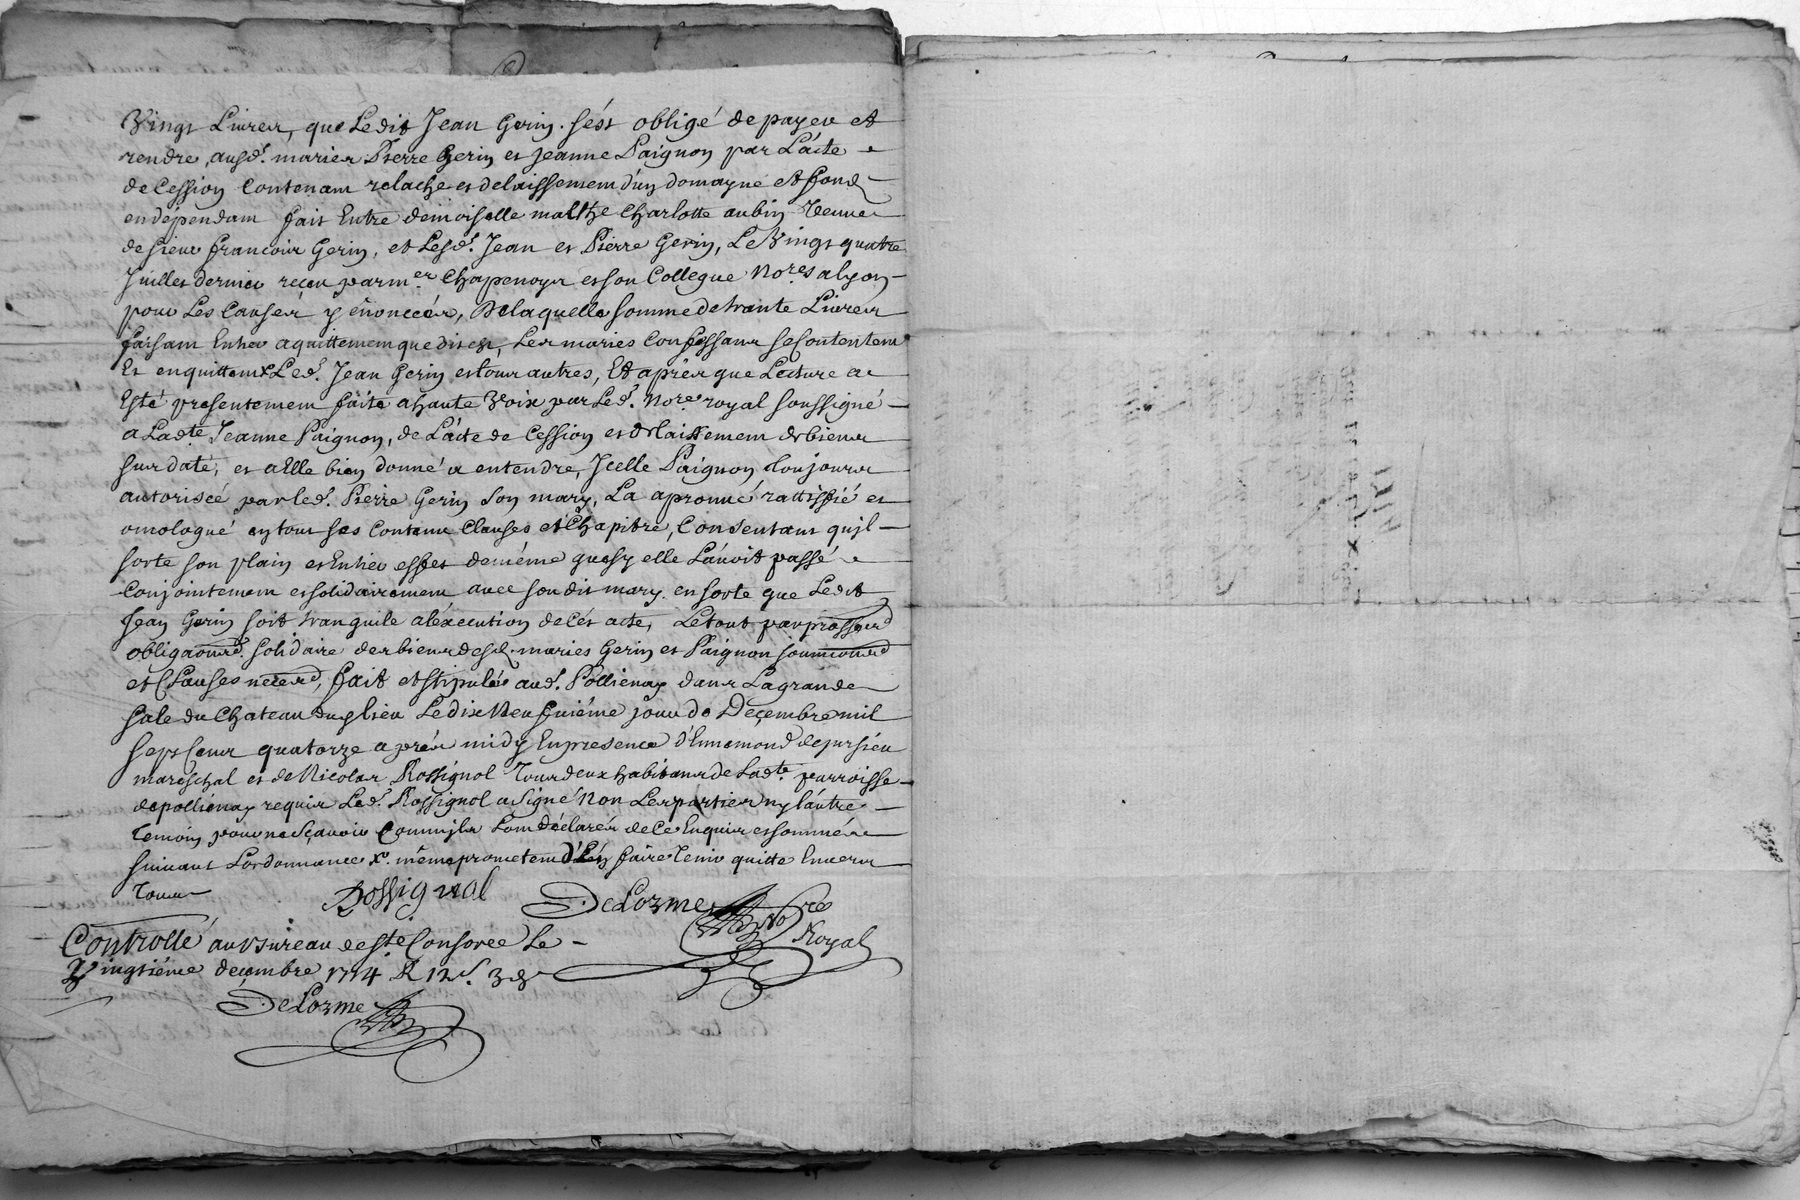 Vingt Livres, que Ledit Jean Gerin s'ést obligé de payer et
rendre ausd.t mariez Pierre Gerin et Jeanne Paignon par L'ácte
de Cession Contenant relache et delaissement d'un domayne et fond
en dependam fait Entre demoiselle malthe Charlotte aubin Veuve
de sieur francois Gerin, et Lesd.t Jean et Pierre Gerin, Le Vingt quatre
Juillet dernier reçeu par m.er Chapenoyr et son Collegue No.res a lyon
pour Les Causes y énonceés, De laquelle somme de trante Livres
faisant Entier aquittement que dit est, Les mariés Confessant se Contentent
Et en quittent Led.t Jean Gerin et tous autres, Et aprés que Lecture a
Esté presentement faite a haute Voix par Led.t No.re royal soussigné
a Lad.te Jeanne Paignon, de L'ácte de Cession et delaissement de biens
sus daté, et a Elle bien donné a entendre, Jcelle Paignon toujours
autoriseé par led.t Pierre Gerin son mary, La aprouué rattiffié et
omologué en tous ses Contenu Clauses et Chapitre, Consentant qu'jl
sorte son plain et Entier effet de méme que sy elle L'áuoit passé
Conjointement et solidairement auec son dit mary en sorte que Ledit
Jean Gerin soit tranquile a l'éxecution de cét acte, Le tout par
obligaon solidaire des biens desd. mariés Gerin et Paignon
et Clauses fait et stipulé aud.t Pollienay dans La grande
sale du Chateau du lieu Le dix Neufuiéme jour de Deçembre mil
sept Cent quatorze a prés midy En presence d'Ennemond
mareschal et de Nicolas Rossignol Tous deux habitans de Lad.te parroisse
de pollienay requis Led.t Rossignol a signé Non Les parties ny l'áutre
Temoin pour ne sçauoir Comm'jls L'ont déclarés de Ce Enquis et sommés
suiuant L'ordonnance faire Tenir quitte Enuers
Tous
Rossignol DeLorme No.re
Royal
Controllé au Bureau de S.te Consorce Le
Vingtiéme deçembre 1714 R 12 s. 3 d
DeLorme